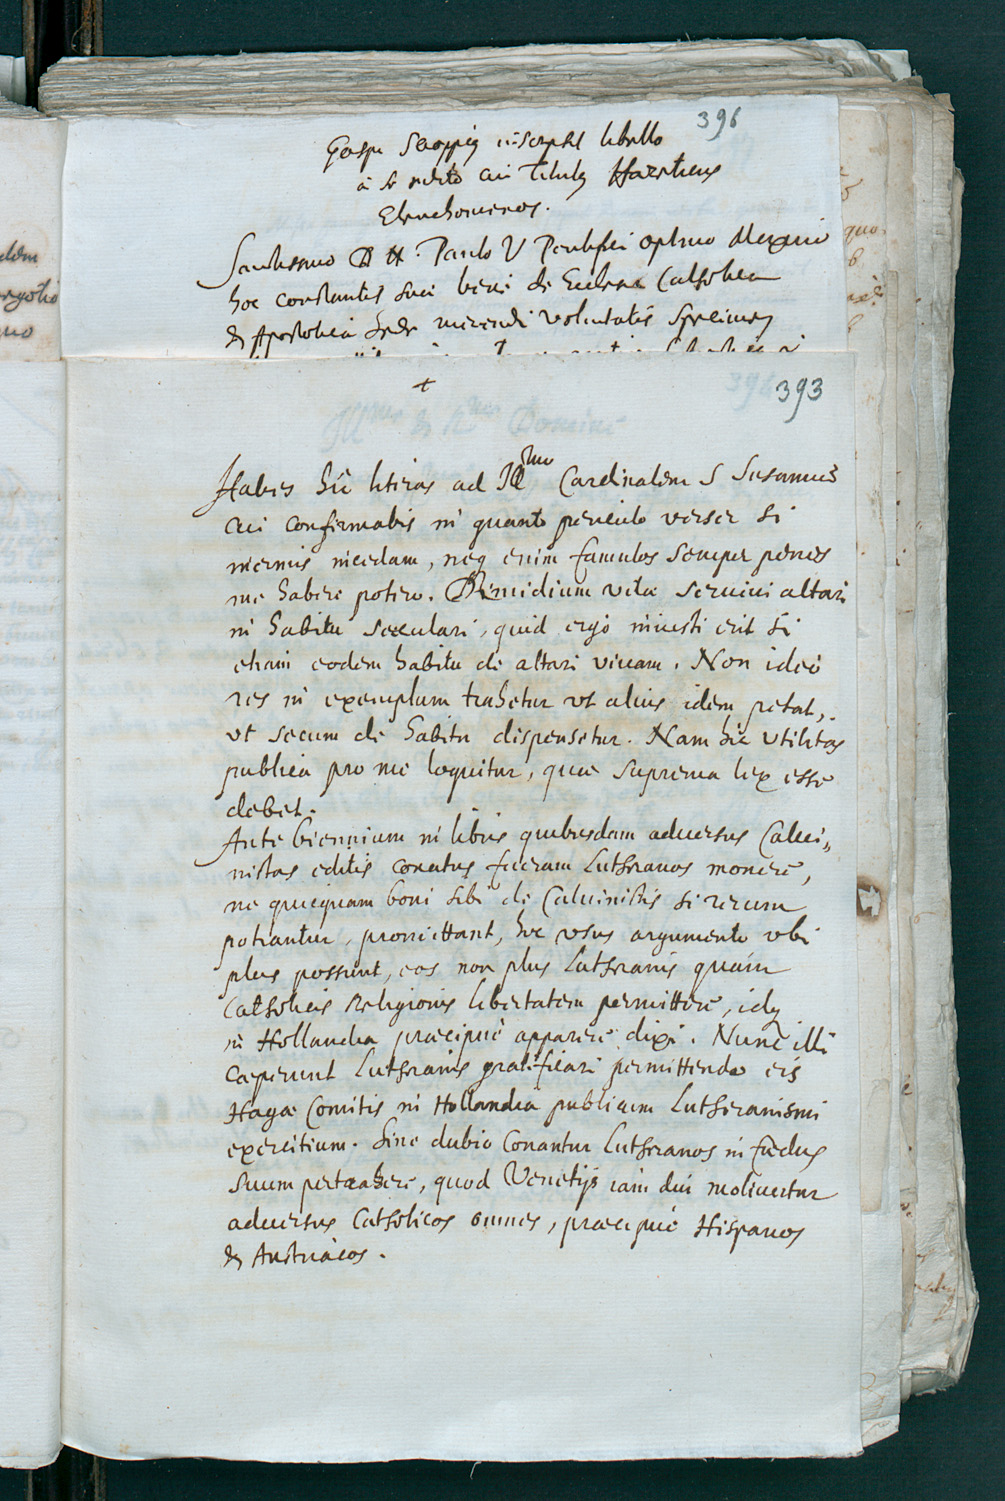 396
Gaspar Scioppius inscripsit libello
à se edito cui titulus Haereticus
Elenchomenos.
Sanctissimo D N. Paulo V Pontifici optimo Maximo
hoc constantis suae bene de Ecclesia Catholica
& Apostolica Sede merendi voluntatis Specimen
+
393
Habes hic literas ad Illmum Cardinalem S Susannae
cui confirmabis in quanto periculo verser si
inermis incedam, neq enim famulos semper penes
me habere potero. Dimidium vitae seruiui altari
in habitu seculari, quid ergo iniusti erit si
etiam eodem habitu de altari viuam. Non ideo
res in exemplum trahetur vt alius idem petat,
vt secum de habitu dispensetur. Nam hic vtilitas
publica pro me loquitur, quae suprema lex esse
debet.
Ante biennium in libris quibusdam aduersus Calui„
nistas editis conatus fueram Lutheranos monere,
ne quicquam boni sibi de Caluinistis si rerum
potiantur, promittant, hoc vsus argumento vbi
plus possunt, eos non plus Lutheranis quàm
Catholicis Religionis libertatem permittere, idq
in Hollandia praecipuè apparere dixi. Nunc illi
caeperunt Lutheranis gratificari permittendo eis
Hagae Comitis in Hollandia publicum Lutheranismi
exercitium. Sine dubio conantur Lutheranos in faedus
suum pertrahere, quod Venetijs iam diu moliuntur
aduersus Catholicos omnes, praecipuè Hispanos
& Austriacos.